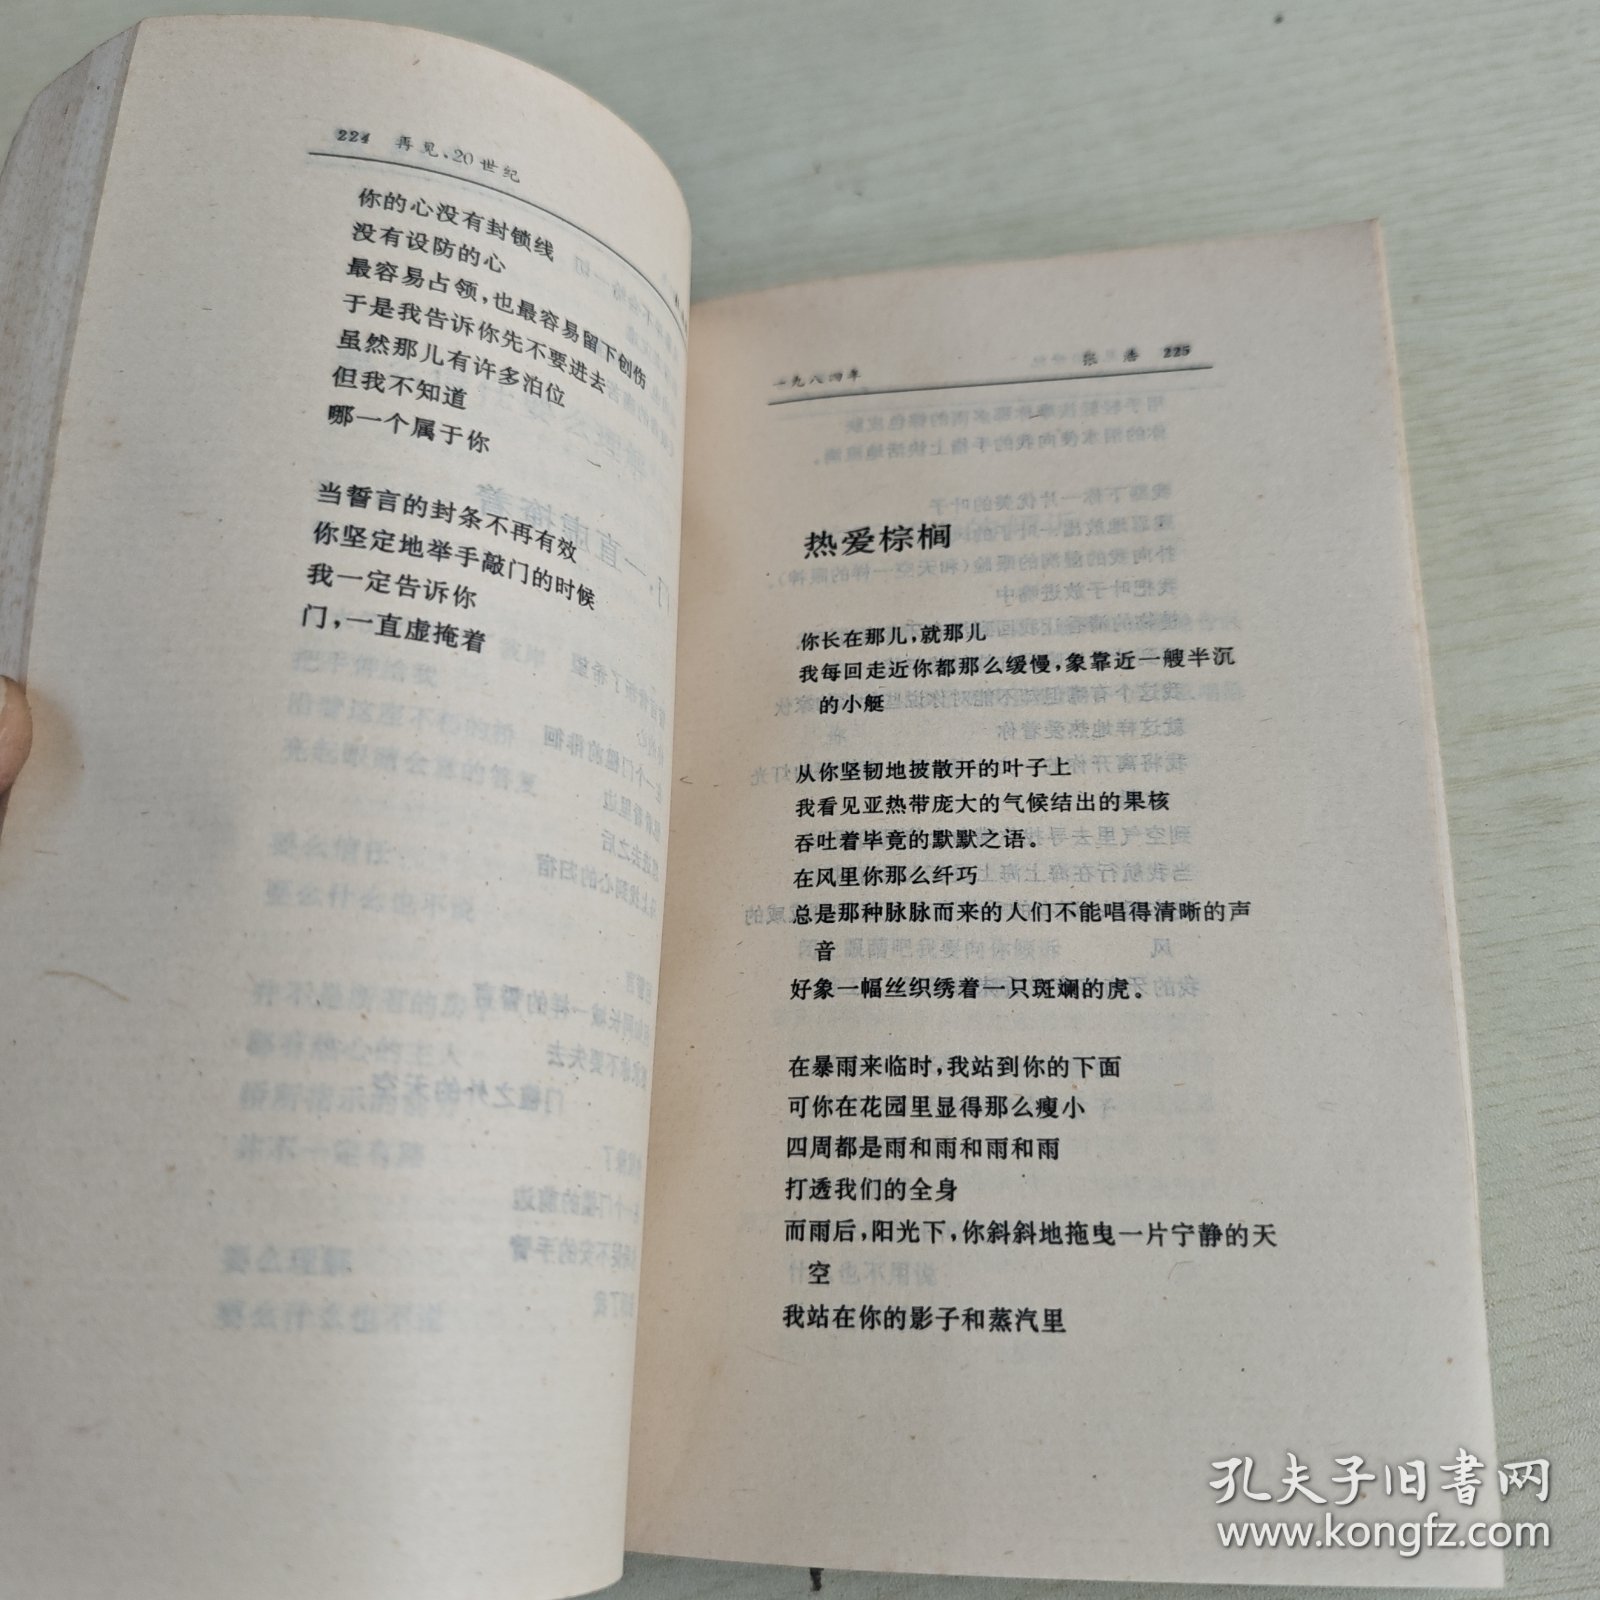 224 再见、20世纪
你的心没有封锁线
没有设防的心
最容易占领，也最容易留下创伤
于是我告诉你先不要进去
虽然那儿有许多泊位
但我不知道
哪一个属于你
当誓言的封条不再有效
你坚定地举手敲门的时候
我一定告诉你
门，一直虚掩着
一九八四年 张浩 225
热爱棕榈
你长在那儿，就那儿
我每回走近你都那么缓慢，象靠近一艘半沉
的小艇
从你坚韧地披散开的叶子上
我看见亚热带庞大的气候结出的果核
吞吐着毕竟的默默之语。
在风里你那么纤巧
总是那种脉脉而来的人们不能唱得清晰的声
音
好象一幅丝织绣着一只斑斓的虎。
在暴雨来临时，我站到你的下面
可你在花园里显得那么瘦小
四周都是雨和雨和雨和雨
打透我们的全身
而雨后，阳光下，你斜斜地拖曳一片宁静的天
空
我站在你的影子和蒸汽里
孔夫子旧书网
www.kongfz.com